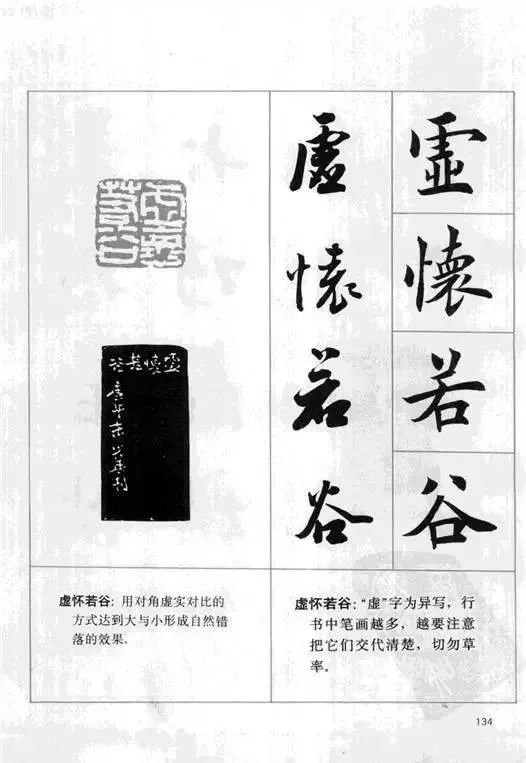 虛懷若谷
虛懷若谷
虛懷若谷
虛懷若谷
虚怀若谷：用对角虚实对比的
方式达到大与小形成自然错
落的效果。
虚怀若谷：“虚”字为异写，行
书中笔画越多，越要注意
把它们交代清楚，切勿草
率。
134